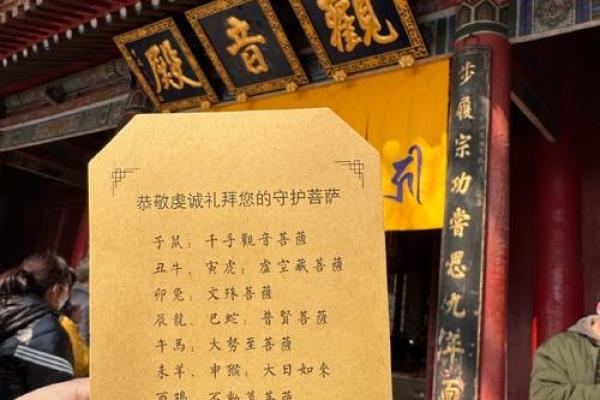 觀音殿
步履宗功嘗思九年面
恭敬虔诚礼拜您的守护菩萨
子鼠：千手觀音菩薩
丑牛、寅虎：虛空藏菩薩
卯兔：文殊菩薩
辰龍、巳蛇：普賢菩薩
午馬：大勢至菩薩
未羊、申猴：大日如來
酉鷄：不動尊菩薩